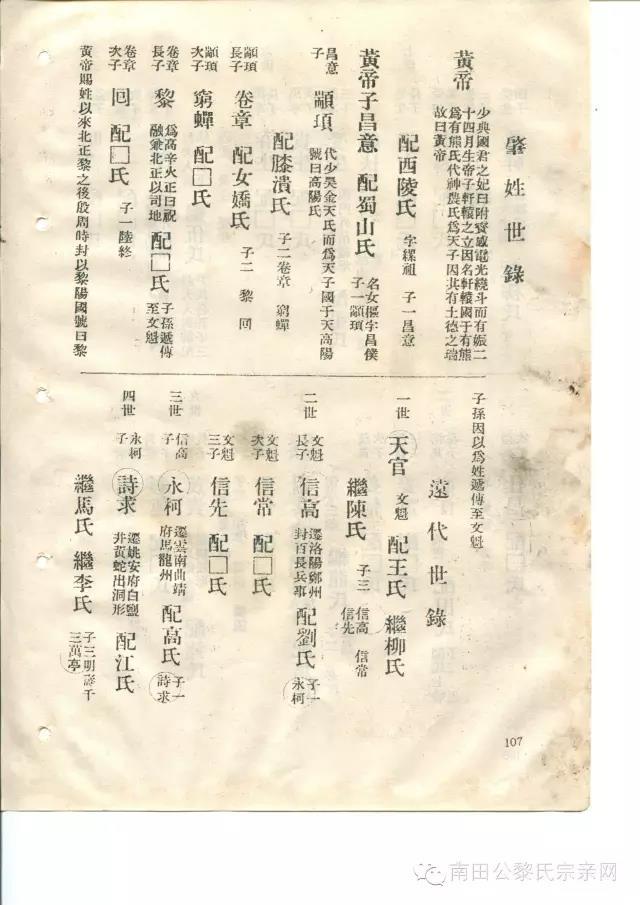 肇姓世錄
黃帝
少典國君之妃曰附寶感電光繞斗而有娠二
十四月生帝子軒轅之立因名軒轅國于有熊
爲有熊氏代神農氏爲天子因其有土德之瑞
故曰黃帝
配西陵氏 字縲祖 子一昌意
黃帝子昌意 配蜀山氏 名女樞字昌僕
子一顓頊
昌意
子
顓頊 代少昊金天氏而爲天子國于天高陽
號曰高陽氏
配滕潰氏 子二卷章 窮蟬
顓頊
長子
卷章 配女嬌氏 子二 黎 回
顓頊
次子
窮蟬 配□氏
卷章
長子
黎 爲高辛火正曰祝
融兼北正以司地
配□氏 子孫遞傳
至文魁
卷章
次子
回 配□氏 子一陸終
黃帝賜姓以來北正黎之後殷周時封以黎陽國號曰黎
子孫因以爲姓遞傳至文魁
遠代世錄
一世 天官 文魁 配王氏 繼柳氏
繼陳氏 子三 信高 信常
信先
二世 文魁
長子
信高 遷洛陽鄭州
封百長兵事
配劉氏 子一
永柯
文魁
次子
信常 配□氏
文魁
三子
信先 配□氏
三世 信高
子
永柯 遷雲南曲靖
府馬龍州
配高氏 子一
詩求
四世 永柯
子
詩求 遷姚安府白鹽
井黃蛇出洞形
配江氏
繼馬氏 繼李氏 子三明壽千
三萬亭
107
南田公黎氏宗亲网